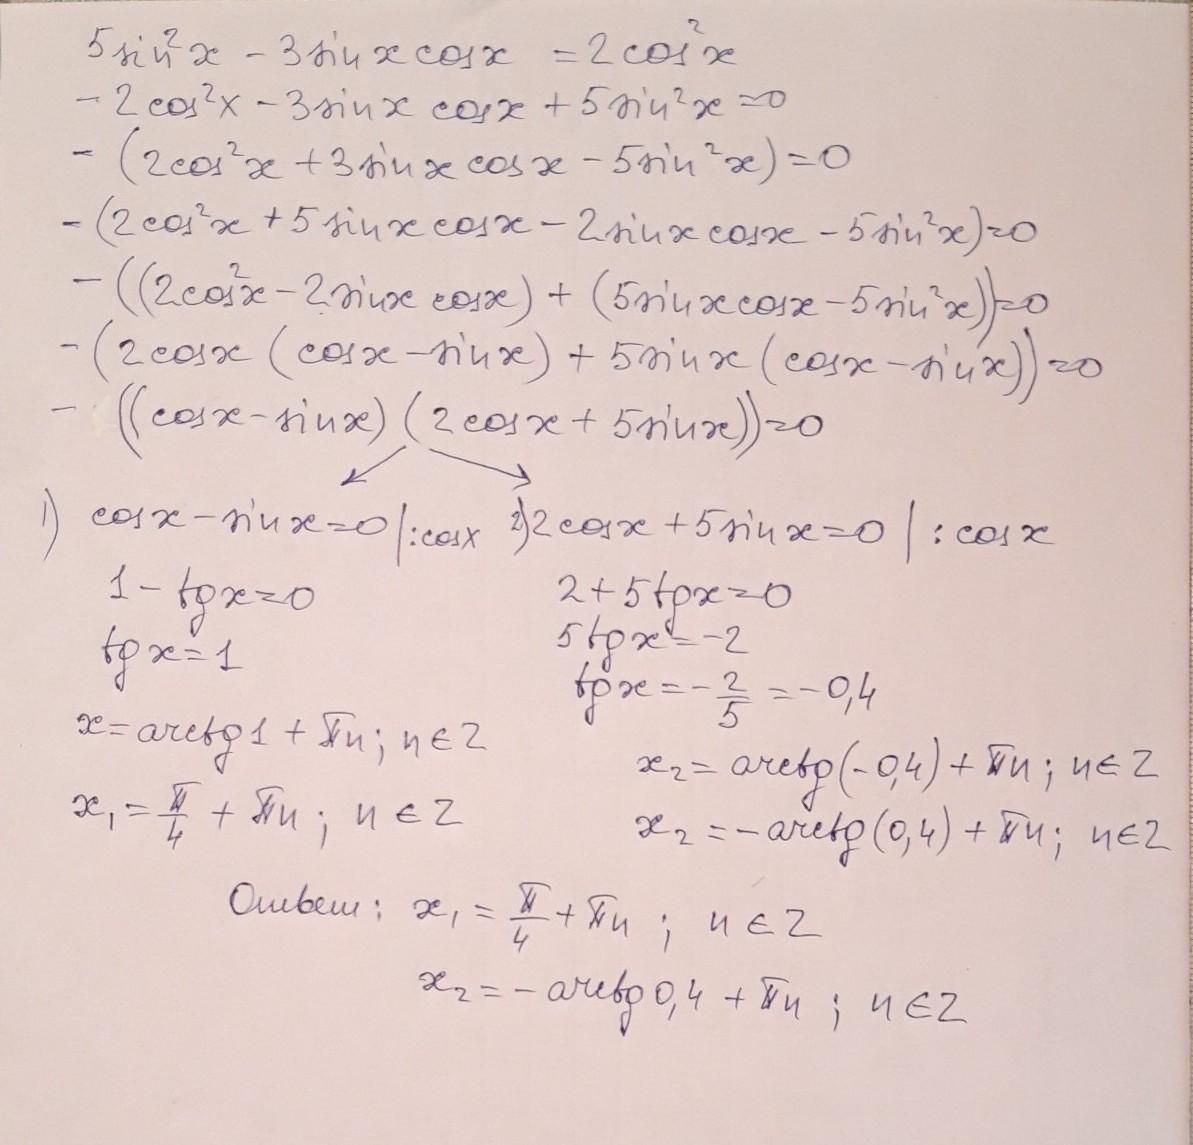 5sin²x - 3sinx cosx = 2cos²x
- 2cos²x - 3sinx cosx + 5sin²x = 0
- (2cos²x + 3sinx cosx - 5sin²x) = 0
- (2cos²x + 5sinx cosx - 2sinx cosx - 5sin²x) = 0
- ((2cos²x - 2sinx cosx) + (5sinx cosx - 5sin²x)) = 0
- (2cosx (cosx - sinx) + 5sinx (cosx - sinx)) = 0
- ((cosx - sinx) (2cosx + 5sinx)) = 0
1) cosx - sinx = 0 | : cosx
1 - tgx = 0
tgx = 1
x = arctg1 + πn; n ∈ Z
x₁ = π/4 + πn; n ∈ Z
2) 2cosx + 5sinx = 0 | : cosx
2 + 5tgx = 0
5tgx = -2
tgx = - 2/5 = -0,4
x₂ = arctg(-0,4) + πn; n ∈ Z
x₂ = - arctg(0,4) + πn; n ∈ Z
Ответ: x₁ = π/4 + πn; n ∈ Z
x₂ = - arctg0,4 + πn; n ∈ Z